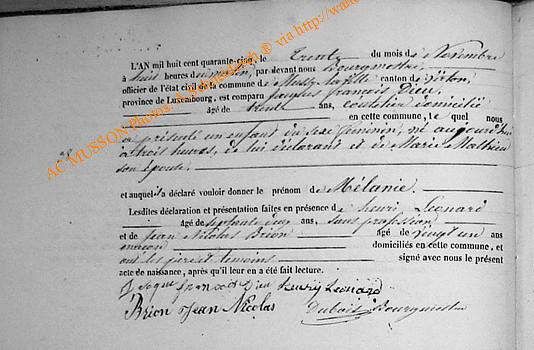 L'AN mil huit cent quarante-cinq, le trente du mois de Novembre
à huit heures du matin, par devant nous Bourgmestre,
officier de l'état civil de la commune de Mussy-la-ville canton de Virton,
province de Luxembourg, est comparu François Dieu,
âgé de trente ans, domicilié
en cette commune, lequel nous
a présenté un enfant du sexe féminin, né aujourd'hui
à trois heures, de lui déclarant et de Marie Mathieu
son épouse,
et auquel il a déclaré vouloir donner le prénom de Mélanie.
Lesdites déclaration et présentation faites en présence de henri Léonard
âgé de septante ans, sans profession
et de Jean Nicolas Brion âgé de vingt un ans
maçon domiciliés en cette commune, et
ont les père et témoins signé avec nous le présent
acte de naissance, après qu'il leur en a été fait lecture.
henry Leonard
Brion Jean Nicolas Dubois Bourgmestre
AC MUSSON Photos: via http://